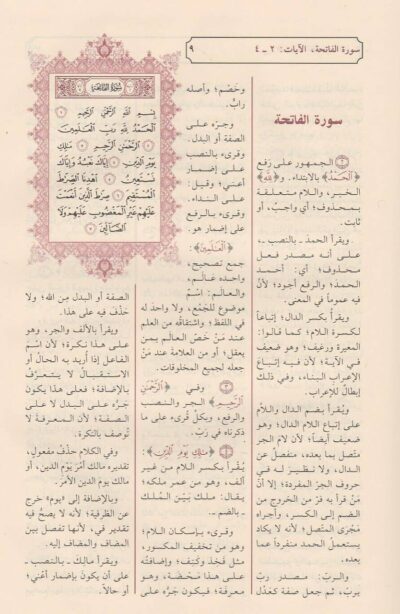 سورة الفاتحة، الآيات: ٢ ـ ٤
٩
سورة الفاتحة
الجمهور على رفع
﴿الْحَمْدُ﴾ بالابتداء. و﴿لله﴾
الخبر، واللام متعلقة
بمحذوف؛ أي واجبٌ، أو
ثابت.
ويقرأ الحمدَ ـ بالنصب ـ،
على أنه مصدر فعل
محذوف؛ أي: أحمد
الحمدَ؛ والرفع أجود؛ لأنَّ
فيه عموماً في المعنى.
ويقرأ بكسر الدال؛ إتباعاً
لكسرة اللام؛ كما قالوا:
المِعِيرة ورِغيف؛ وهو ضعيف
في الآية؛ لأن فيه إتباعَ
الإعراب البناءَ، وفي ذلك
إبطالٌ للإعراب.
ويُقرأ بضم الدال واللام
على إتباع اللام الدال؛ وهو
ضعيف أيضاً؛ لأن لام الجر
متصل بما بعده، منفصلٌ عن
الدال، ولا نظيرَ له في
حروف الجرّ المفردة؛ إلا أنّ
مَنْ قرأ به فرّ من الخروج من
الضم إلى الكسر، وأجراه
مُجْرَى المتّصل؛ لأنه لا يكاد
يستعملُ الحمد منفرداً عما
بعده.
والربّ: مصدر ربّ
يربّ، ثم جعل صفة كعَدْل
وخَصْم؛ وأصله
رابّ.
وجرّه على
الصفة أو البدل.
وقرىء بالنصب
على إضمار
أعني؛ وقيل:
على النداء.
وقرىء بالرفع
على إضمار هو.
﴿الْعَالَمِينَ﴾:
جمع تصحيح،
واحده عالَم،
والعالَم: اسمٌ
موضوع للجَمْع، ولا واحد له
في اللفظ؛ واشتقاقُه من العلم
عند مَنْ خصّ العالَم بمن
يعقل؛ أو من العلامة عند مَنْ
جعله لجميع المخلوقات.
وفي ﴿الرَّحْمَنِ
الرَّحِيمِ﴾ الجر والنصب
والرفع، وبكلّ قُرىء على ما
ذكرناه في ربّ.
﴿مَلِكِ يَوْمِ الدِّينِ﴾:
يُقرأ بكسر اللام من غير
ألف، وهو من عمر ملكه؛
يقال: ملك بَيّن المُلك
ـ بالضم ـ.
وقرىء بإسكان اللام؛
وهو من تخفيف المكسور،
مثل فَخْذ وكَتِف؛ وإضافتُه
على هذا مَحْضَة، وهو
معرفة؛ فيكون جرُّه على
سُورَةُ الفَاتِحَةِ
بِسْمِ اللَّهِ الرَّحْمَنِ الرَّحِيمِ ١
الْحَمْدُ لِلَّهِ رَبِّ الْعَالَمِينَ
٢ الرَّحْمَنِ الرَّحِيمِ ٣ مَلِكِ
يَوْمِ الدِّينِ ٤ إِيَّاكَ نَعْبُدُ وَإِيَّاكَ
نَسْتَعِينُ ٥ اهْدِنَا الصِّرَاطَ
الْمُسْتَقِيمَ ٦ صِرَاطَ الَّذِينَ أَنْعَمْتَ
عَلَيْهِمْ غَيْرِ الْمَغْضُوبِ عَلَيْهِمْ وَلَا
الضَّالِّينَ ٧
الصفة أو البدل مِن الله؛ ولا
حَذْف فيه على هذا.
ويقرأ بالألف والجر، وهو
على هذا نكرة؛ لأن اسْمَ
الفاعل إذا أريد به الحالُ أو
الاستقبالُ لا يتعرّفُ
بالإضافة؛ فعلى هذا يكون
جَرُّه على البدل لا على
الصفة؛ لأن المعرفةَ لا
تُوصف بالنكرة.
وفي الكلام حَذْفُ مفعولٍ،
تقديره مالك أمْرِ يَوْمِ الدين، أو
مالك يومَ الدين الأمرَ.
وبالإضافة إلى «يوم» خرج
عن الظرفية؛ لأنه لا يصحُّ فيه
تقدير في، لأنها تفصل بين
المضاف والمضاف إليه.
ويقرأ مالكَ ـ بالنصب ـ
على أن يكون بإضمار أعني؛
أو حالاً.